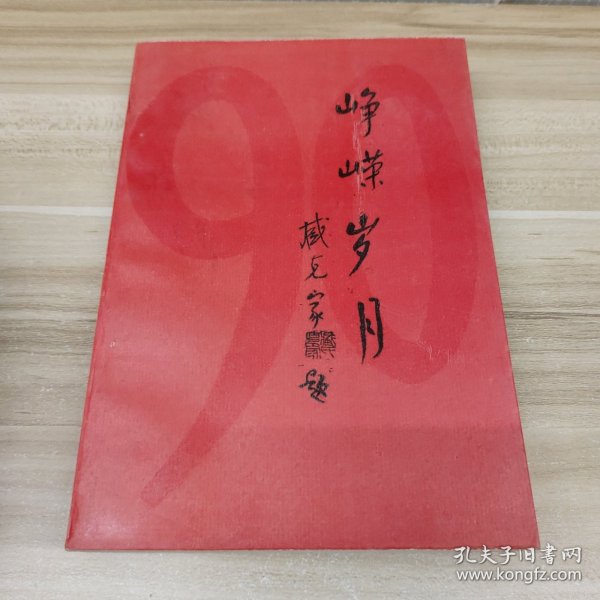 90
峥嵘岁月
臧克家
题
孔夫子旧书网
www.kongfz.com